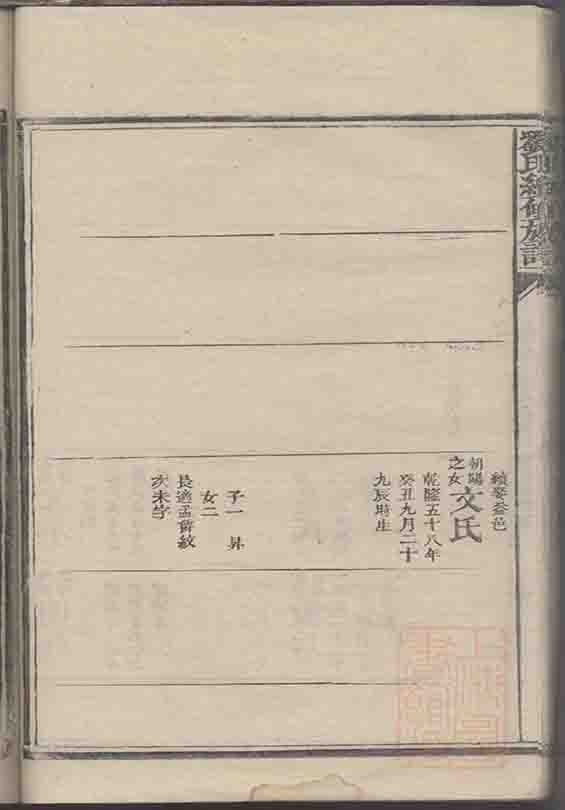 劉氏續修族譜
續娶益邑
朝陽
之女
文氏
乾隆五十八年
癸丑九月二十
九辰時生
子一 昇
女二
長適孟
次未字